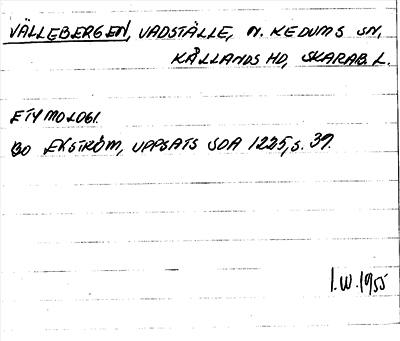 VÄLLEBERGEN, VADSTÄLLE, N. KEDUMS SN,
KÅLLANDS HD, SKARAB. L.
ETYMOLOGI.
BO EKSTRÖM, UPPSATS SOA 1225, S. 39.
I.W. 1955